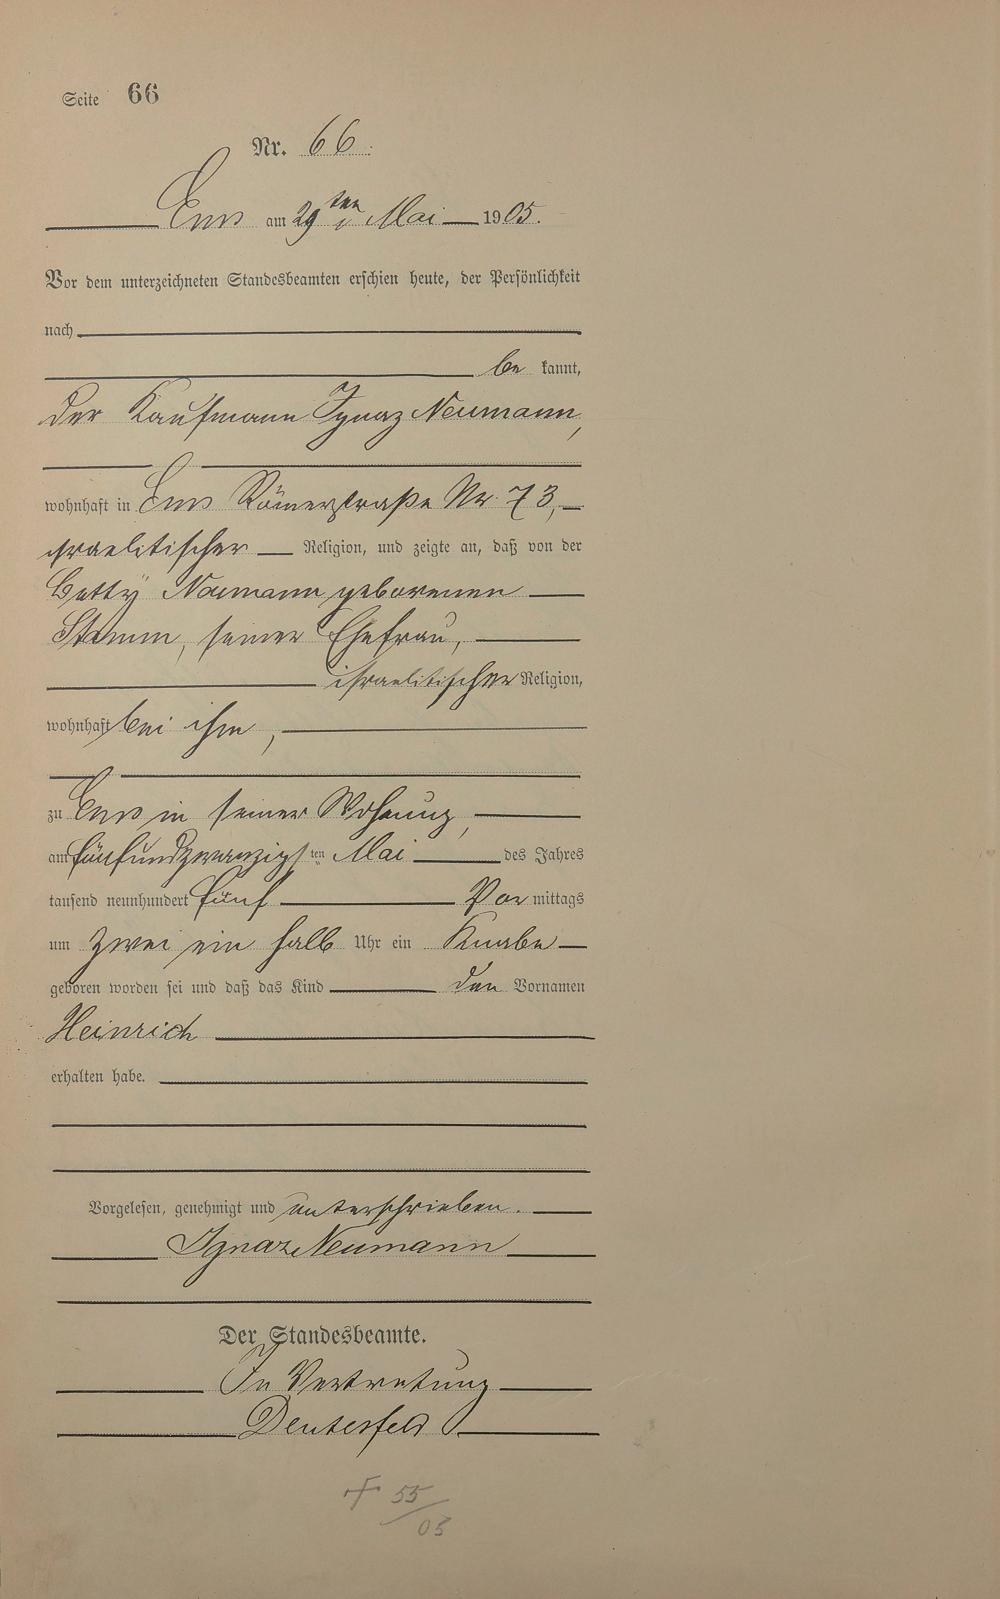 Seite 66
Nr. 66.
Ems am 29ten Mai 1905.
Vor dem unterzeichneten Standesbeamten erschien heute, der Persönlichkeit
nach
be kannt,
der Kaufmann Ignaz Neumann,
wohnhaft in Ems Römerstraße Nr. 73,
israelitischer Religion, und zeigte an, daß von der
Betty Neumann geborenen
Stamm, seiner Ehefrau,
israelitischer Religion,
wohnhaft bei ihm,
zu Ems in seiner Wohnung,
am fünfundzwanzigsten Mai des Jahres
tausend neunhundert fünf Vor mittags
um zwei ein halb Uhr ein Knabe
geboren worden sei und daß das Kind den Vornamen
Heinrich
erhalten habe.
Vorgelesen, genehmigt und unterschrieben.
Ignaz Neumann
Der Standesbeamte.
In Vertretung
† 55/05